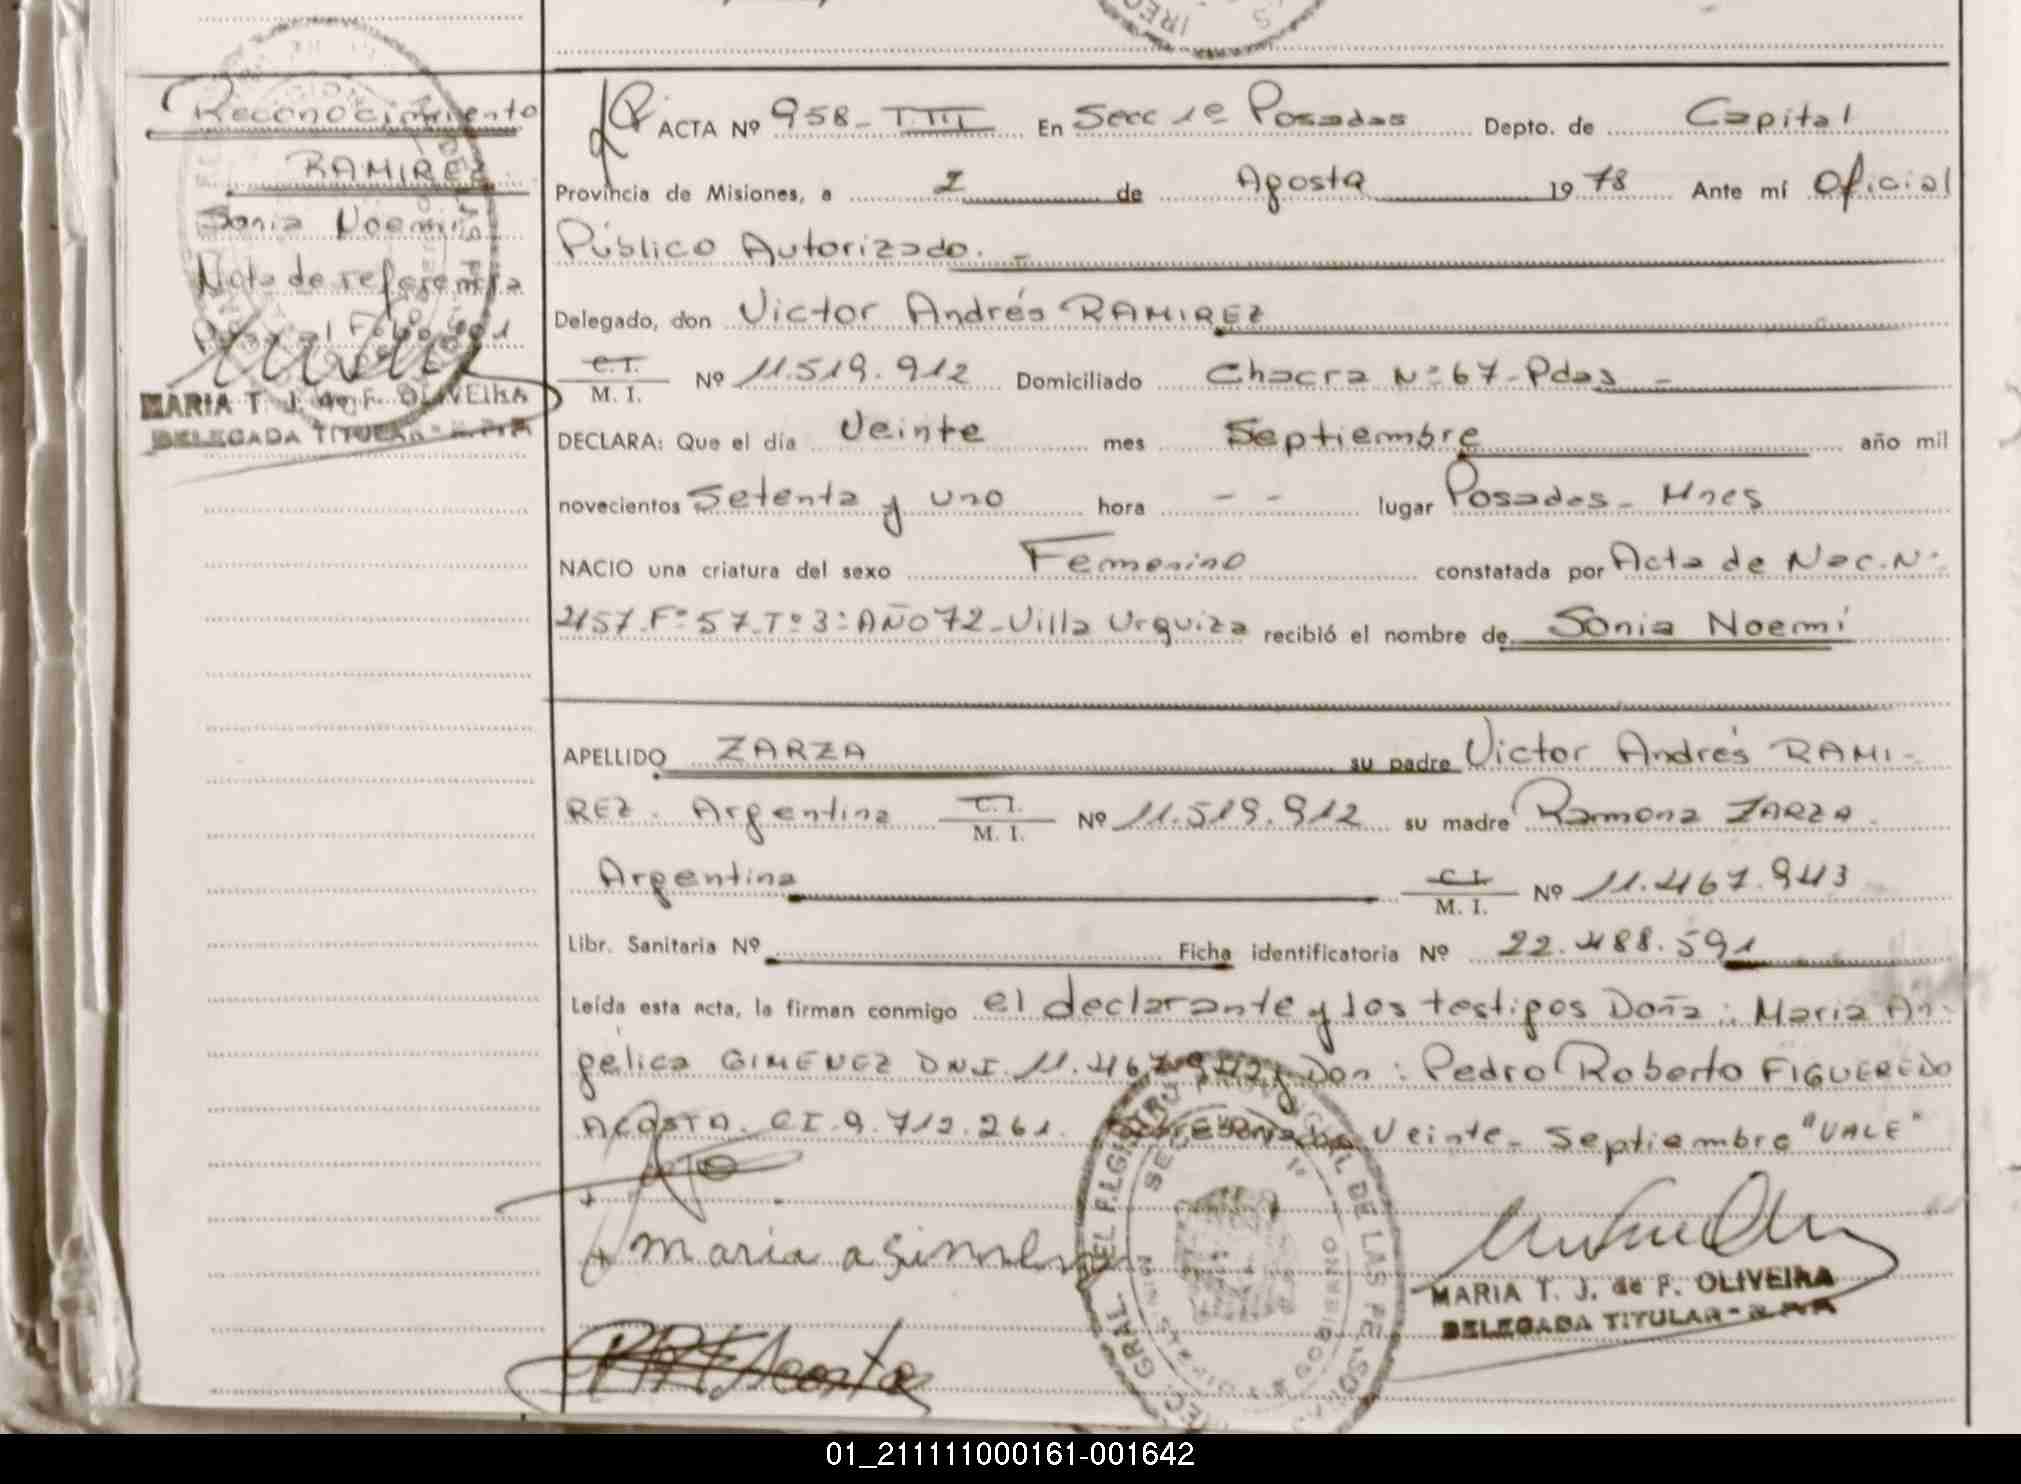 Reconocimiento
RAMIREZ
Sonia Noemi
Nota de referencia
MARIA T. J. de F. OLIVEIRA
DELEGADA TITULAR
ACTA Nº 958-TIII En Secc 1º Posadas Depto. de Capital
Provincia de Misiones, a 2 de Agosta 1978 Ante mí Oficial
Público Autorizado. -
Delegado, don Victor Andrés RAMIREZ
C.I. M. I. Nº 11.519.912 Domiciliado Chacra Nº 67-Pdas -
DECLARA: Que el día Veinte mes Septiembre año mil
novecientos Setenta y uno hora - - lugar Posadas- Mnes
NACIO una criatura del sexo Femenino constatada por Acta de Nac. Nº
457-Fº 57-Tº 3: AÑO 72-Villa Urquiza recibió el nombre de Sonia Noemí
APELLIDO ZARZA su padre Victor Andrés RAMI-
REZ. Argentina C.I. M. I. Nº 11.519.912 su madre Ramona ZARZA.
Argentina C.I. M. I. Nº 11.467.943
Libr. Sanitaria Nº Ficha identificatoria Nº 22.488.591
Leída esta acta, la firman conmigo el declarante y los testigos Doña: Maria An-
gélica GIMENEZ DNI. Don: Pedro Roberto FIGUEREDO
ACOSTA. CI. 9.712.261. Veinte- Septiembre "VALE"
maria a Gimenez
Acosta
MARIA T. J. de F. OLIVEIRA
DELEGADA TITULAR
01_211111000161-001642